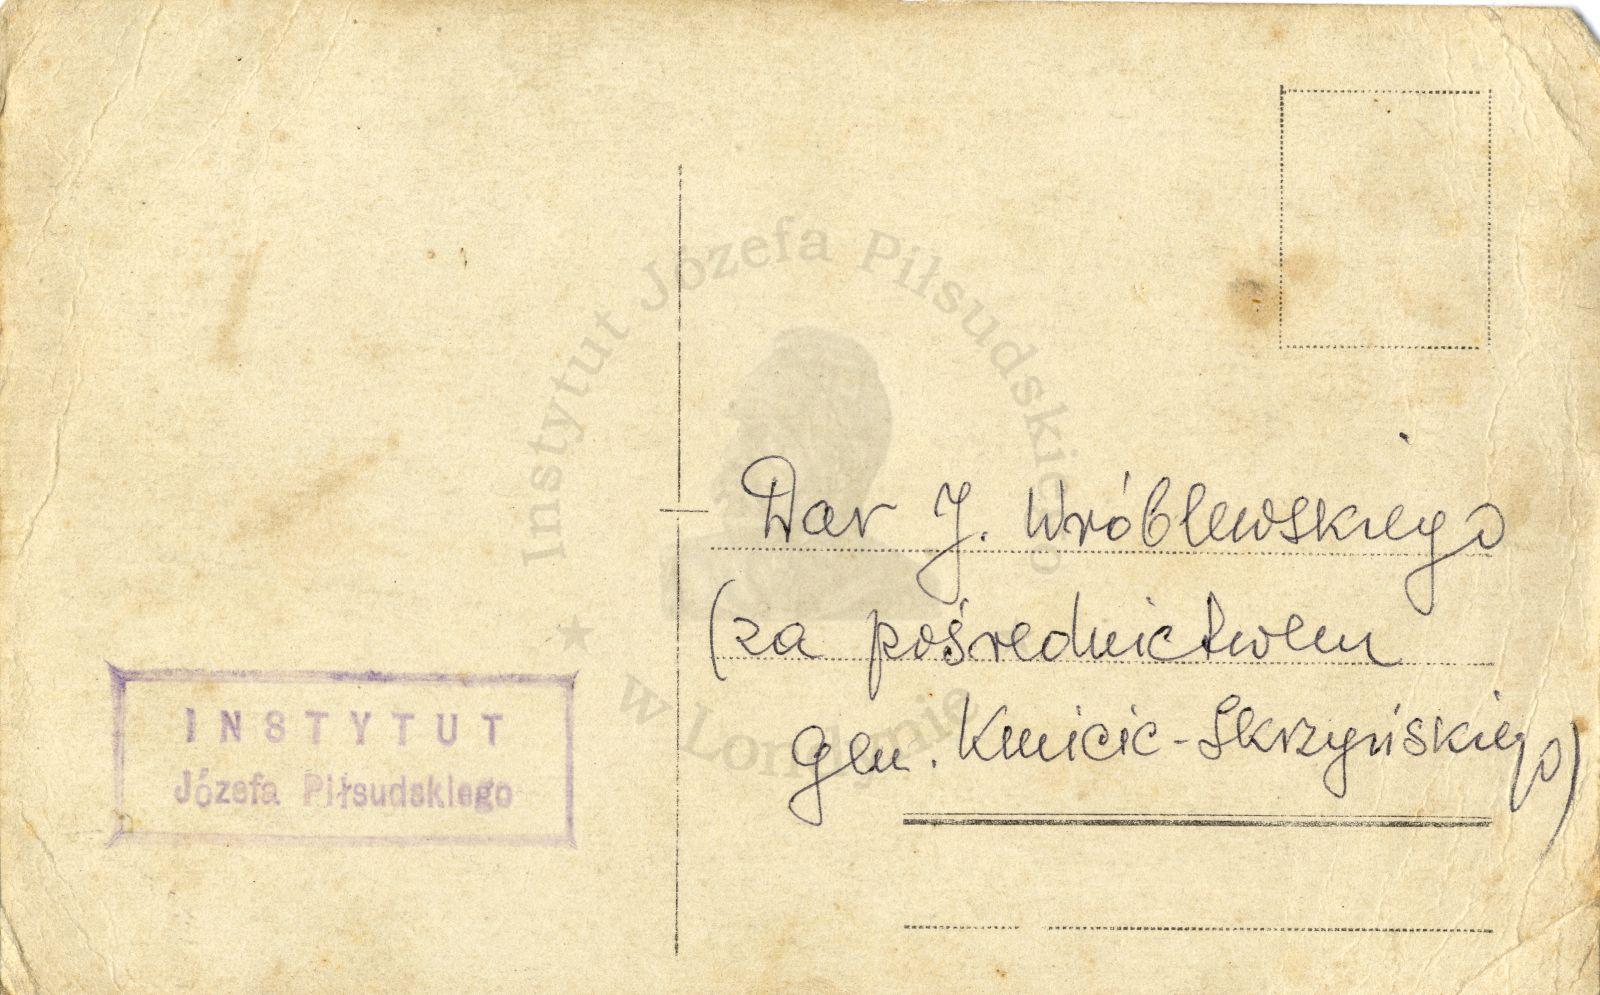 Instytut Józefa Piłsudskiego
w Londynie
Dar J. Wróblewskiego
(za pośrednictwem
gen. Kmicic-Skrzyńskiego)
INSTYTUT
Józefa Piłsudskiego